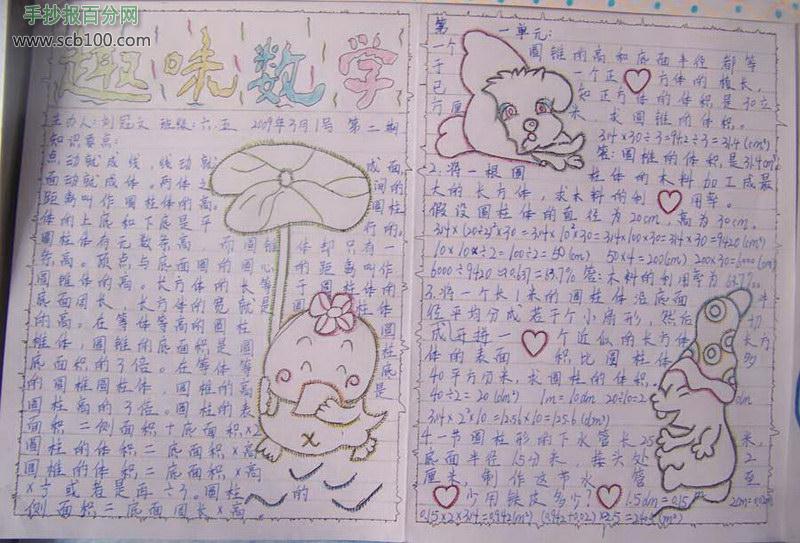 手抄报百分网
www.scb100.com
趣味数学
主办人:刘冠文 班级:六.五 2009年3月1号 第二期
知识要点:
点动就成线,线动就成面,
面动就成体。两体之间的
距离叫作圆柱体的高。圆柱
体的上底和下底是平行的。
圆柱体有无数条高,而圆锥体却只有一
条高。顶点与底面圆的圆心的距离叫作
圆锥体的高。长方体的长等于圆柱体的
底面周长,长方体的宽就是圆柱体
的高。在等体等高的圆柱圆
锥体,圆锥的底面积是圆柱
底面积的3倍。在等体等底
的圆锥圆柱体,圆锥的高是
圆柱高的3倍。圆柱的表
面积=侧面积+底面积×2
圆柱的体积=底面积×高
圆锥的体积=底面积×高
×⅓或者是再÷3。圆柱的
侧面积=底面周长×高
第一单元:
一个圆锥的高和底面半径都等
于一个正方体的棱长,
已知正方体的体积是30立
方厘米,求圆锥的体积。
3.14×30÷3=94.2÷3=31.4(cm³)
答:圆锥的体积是31.4cm³
2.将一根圆柱体的木料加工成最
大的长方体,求木料的利用率。
假设圆柱体的直径为20cm,高为30cm。
3.14×(20÷2)²×30=3.14×10²×30=3.14×100×30=314×30=9420(cm³)
10×10×÷2=100÷2=50(cm²) 50×4=200(cm²) 200×30=6000(cm³)
6000÷9420≈0.637=63.7% 答:木料的利用率为63.7%。
3.将一个长1米的圆柱体沿底面半
径平均分成若干个小扇形,然后切
成开拼一个近似的长方体,长方
体的表面积比圆柱体多
40平方分米,求圆柱的体积。
40÷2=20(dm²) 1m=10dm 20÷10=2dm
3.14×2²×10=12.56×10=125.6(dm³)
4.一节圆柱形的下水管长25米,
底面半径15分米,接头处2
厘米,制作这节水管至
少用铁皮多少? 1.5dm=0.15 2cm=0.02m
0.15×2×3.14=0.942(m²) (0.942+0.02)×2.5=2.405(m²)